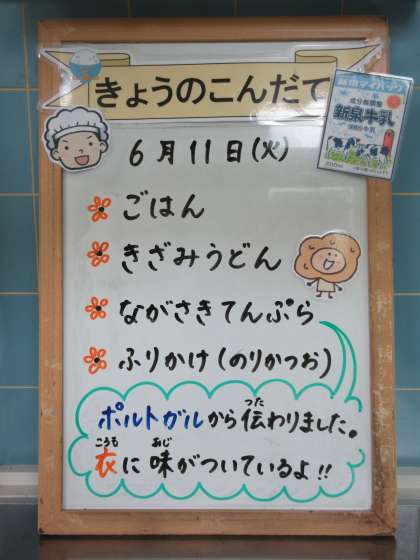 きょうのこんだて
6月11日(火)
ごはん
きざみうどん
ながさきてんぷら
ふりかけ(のりかつお)
ポルトガルから伝わりました。
つた
衣に味がついているよ!!
こうも あじ
成分無調整
新泉牛乳